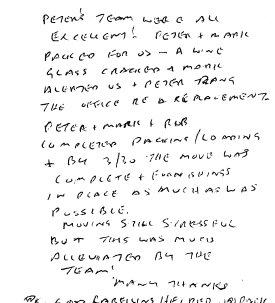 PETER'S TEAM WERE ALL
EXCELLENT! PETER + MARK
PACKED FOR US - A WINE
GLASS CRACKED + MARK
ALERTED US + PETER RANG
THE OFFICE RE A REPLACEMENT.
PETER + MARK + ROB
COMPLETED PACKING/LOADING
+ BY 3/30 THE MOVE WAS
COMPLETE + FURNISHINGS
IN PLACE AS MUCH AS WAS
POSSIBLE.
MOVING STILL STRESSFUL
BUT THIS WAS MUCH
ALLEVIATED BY THE
TEAM!
MANY THANKS
HELPED